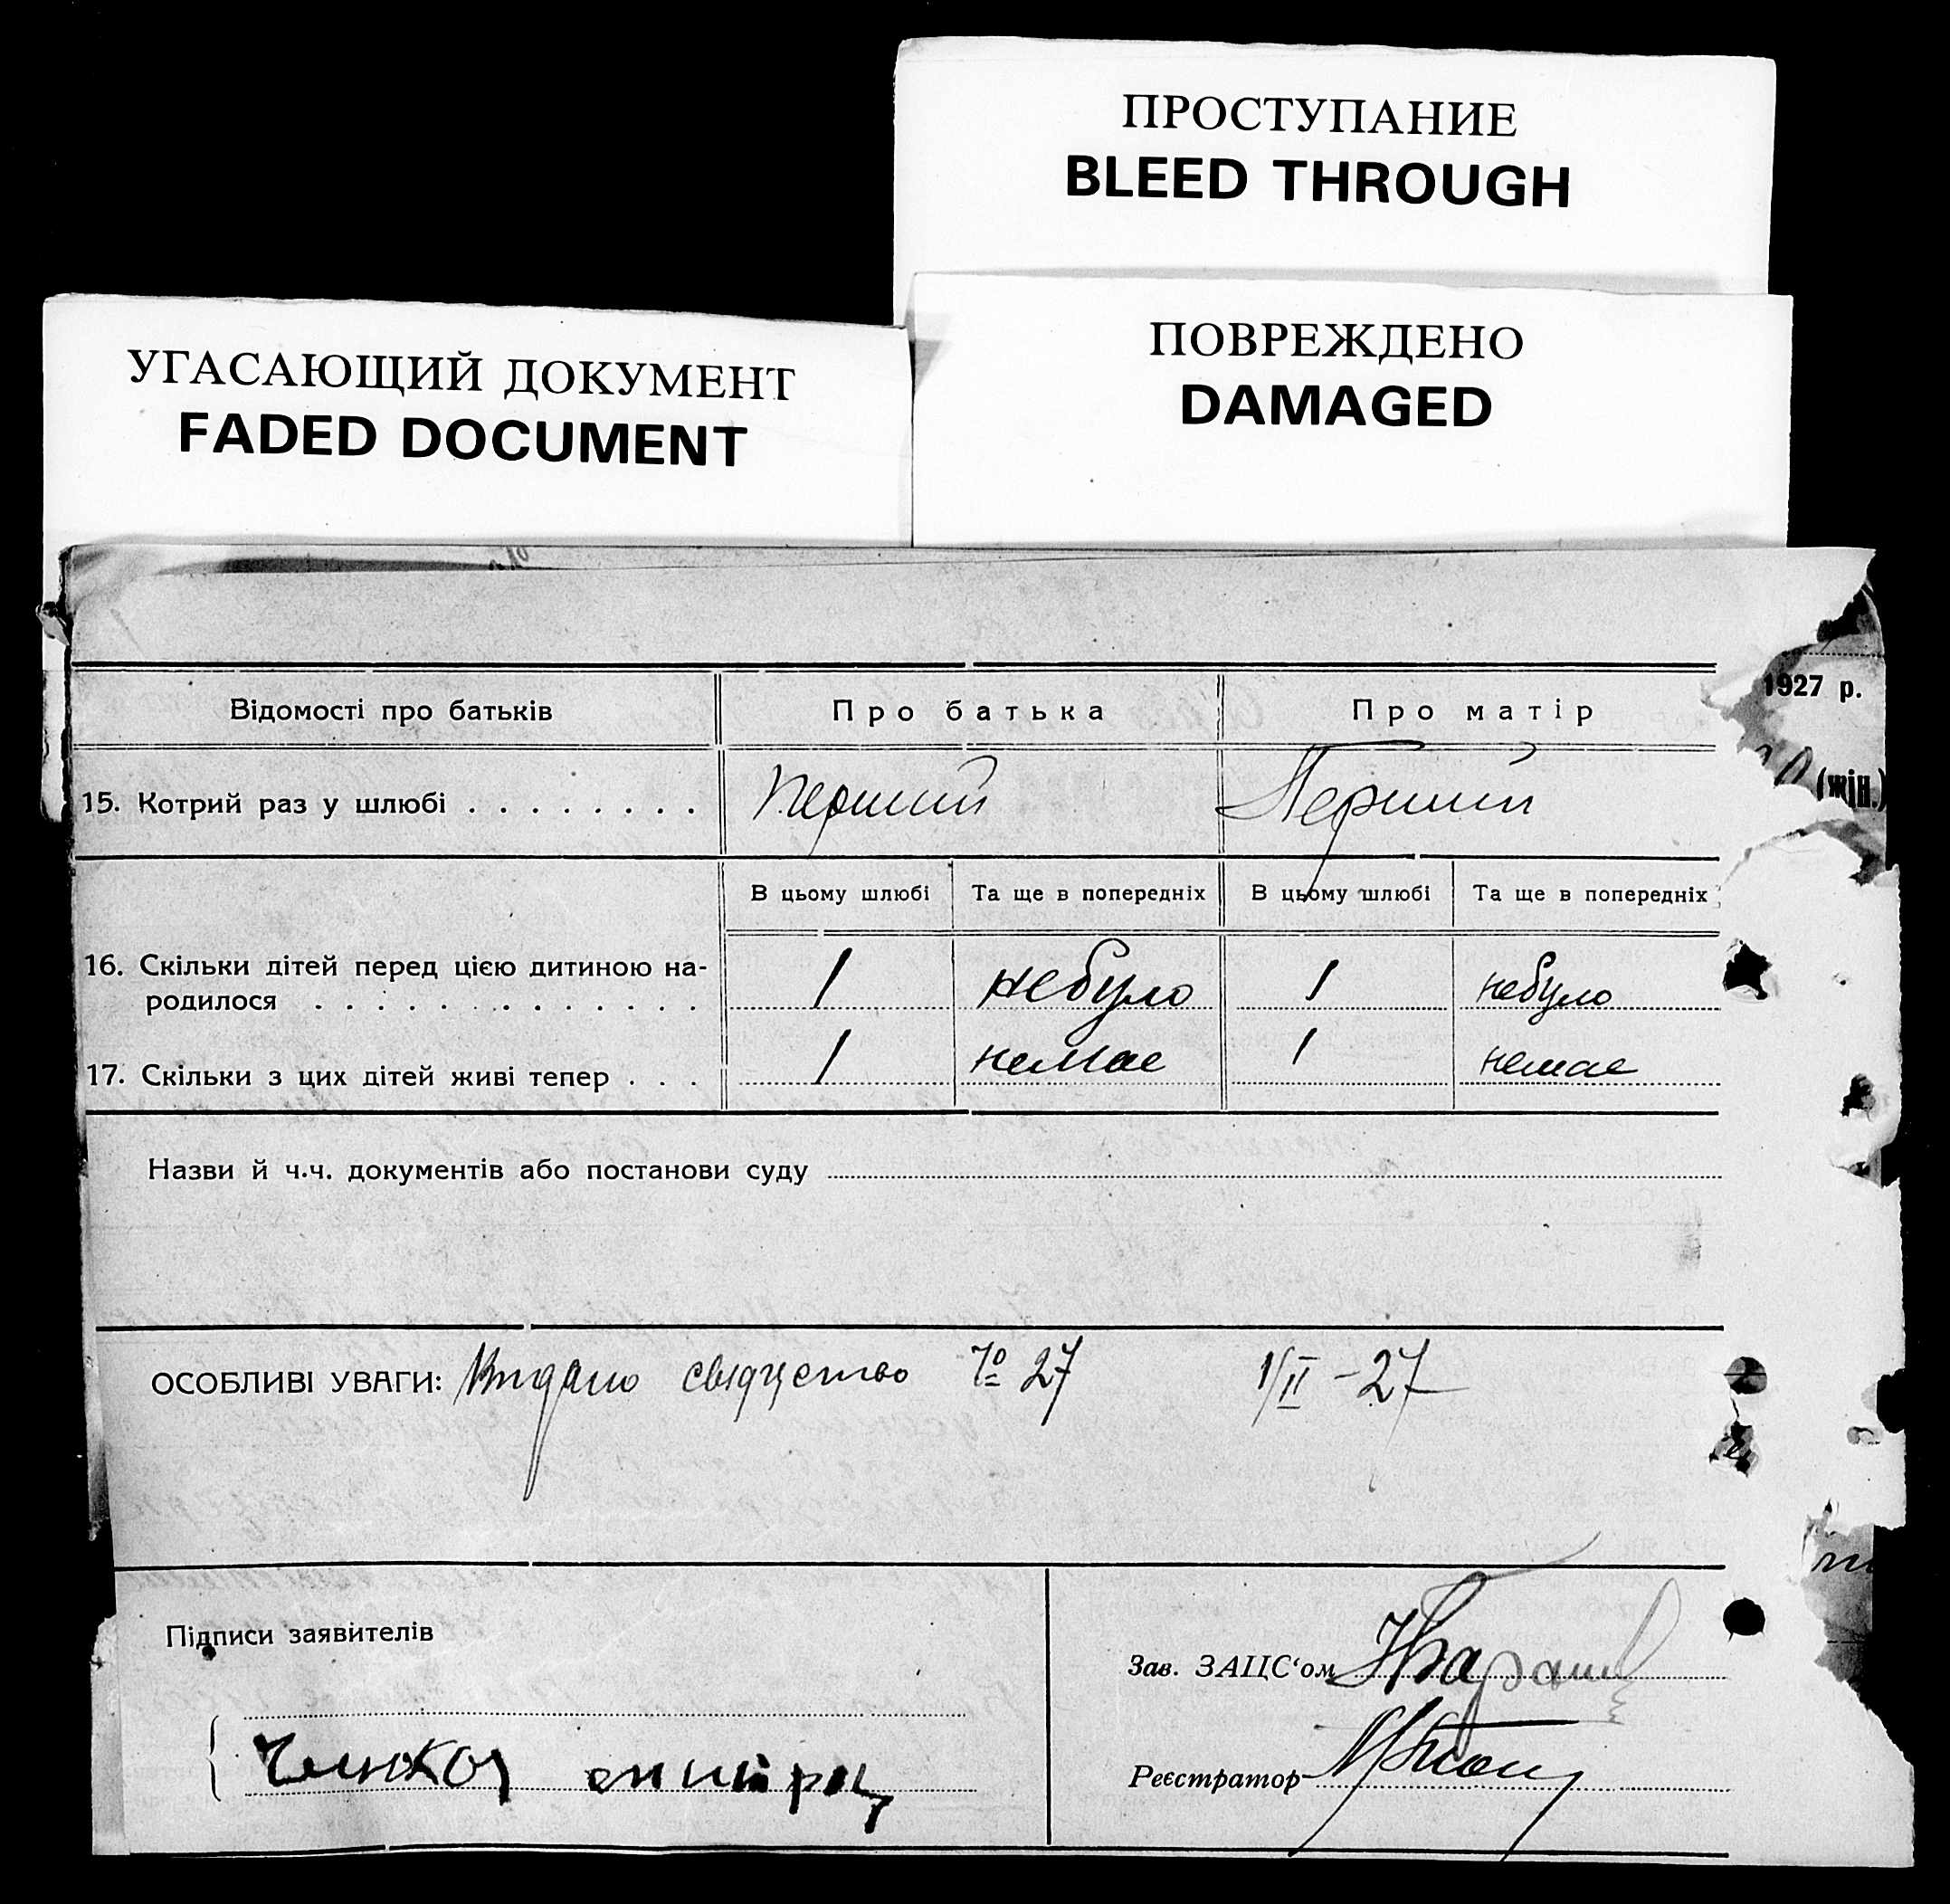 ПРОСТУПАНИЕ
BLEED THROUGH
УГАСАЮЩИЙ ДОКУМЕНТ
FADED DOCUMENT
ПОВРЕЖДЕНО
DAMAGED
1927 р.
(жін.)
Відомості про батьків Про батька Про матір
15. Котрий раз у шлюбі . . . . . . . . Перший Перший
В цьому шлюбі Та ще в попередніх В цьому шлюбі Та ще в попередніх
16. Скільки дітей перед цією дитиною на-
родилося . . . . . . . . . . . . . 1 небуло 1 небуло
17. Скільки з цих дітей живі тепер . . . 1 немає 1 немає
Назви й ч.ч. документів або постанови суду
ОСОБЛИВІ УВАГИ: Видано свідуцство № 27 1/II - 27
Підписи заявителів
Зав. ЗАЦС‘ом
Реєстратор